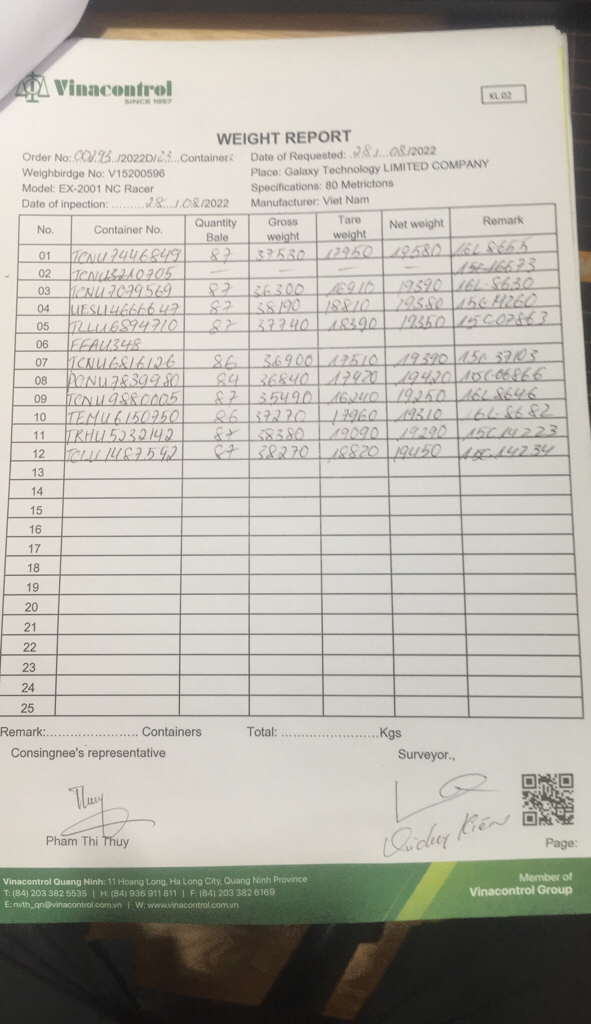 Vinacontrol
SINCE 1957
KL.02
WEIGHT REPORT
Order No: /2022D/23...Containers Date of Requested: 28/08/2022
Weighbirdge No: V15200596 Place: Galaxy Technology LIMITED COMPANY
Model: EX-2001 NC Racer Specifications: 80 Metrictons
Date of inpection: ..........28../08/2022 Manufacturer: Viet Nam
No. Container No. Quantity Bale Gross weight Tare weight Net weight Remark
01 TCNU7446849 87 37530 17950 19580 16L 8655
02 TCNU3210705 — — — — 15C16673
03 TCNU7079569 87 36300 16910 19390 16L-8630
04 UESU4666647 87 38190 18810 19380
05 TLLU6894710 87 37740 18390 19350 15C07863
06 FEAU348
07 TCNU6816126 86 36900 17510 19390 15C 37103
08 PONU7839980 84 36840 17420 19420 15C-06866
09 TCNU9880005 87 35490 16240 19250 16L 8646
10 TEMU6150750 86 37270 17960 19310 16L-8682
11 TRHU5232142 87 38380 19090 19290 15C14223
12 TCLU1487592 87 38270 18820 19450 15C-14234
13
14
15
16
17
18
19
20
21
22
23
24
25
Remark:....................... Containers Total: ........................Kgs
Consingnee's representative Surveyor.,
Thuy
Pham Thi Thuy
Page:
Vinacontrol Quang Ninh: 11 Hoang Long, Ha Long City, Quang Ninh Province
T: (84) 203 382 5535 | H: (84) 936 911 811 | F: (84) 203 382 6169
E: nvth_qn@vinacontrol.com.vn | W: www.vinacontrol.com.vn
Member of
Vinacontrol Group